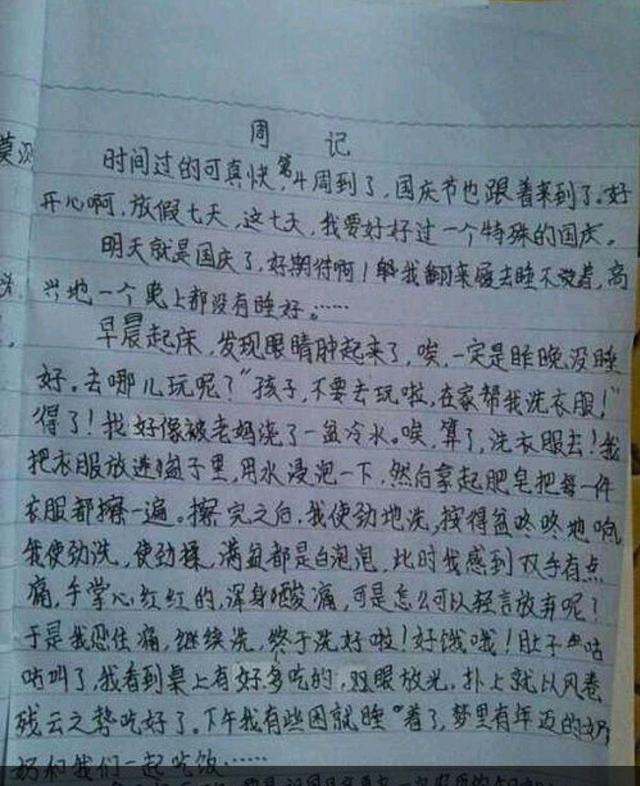 周 记
时间过的可真快,第4周到了,国庆节也跟着来到了。好
开心啊,放假七天,这七天,我要好好过一个特殊的国庆。
明天就是国庆了,好期待啊!我翻来覆去睡不着,高
兴地一个晚上都没有睡好。……
早晨起床,发现眼睛肿起来了,唉,一定是昨晚没睡
好。去哪儿玩呢?"孩子,不要去玩啦,在家帮我洗衣服!"
得了!我好像被老妈浇了一盆冷水。唉,算了,洗衣服去!我
把衣服放进盆子里,用水浸泡一下,然后拿起肥皂把每一件
衣服都擦一遍。擦完之后,我使劲地洗,按得盆咚咚地响
我使劲洗,使劲揉,满盆都是白泡泡,此时我感到双手有点
痛,手掌心红红的,浑身酸痛,可是怎么可以轻言放弃呢?
于是我忍住痛,继续洗,终于洗好啦!好饿哦!肚子咕
咕叫了,我看到桌上有好多吃的,双眼放光,扑上就以风卷
残云之势吃好了。下午我有些困就睡着了,梦里有年迈的奶
奶和我们一起吃饭……